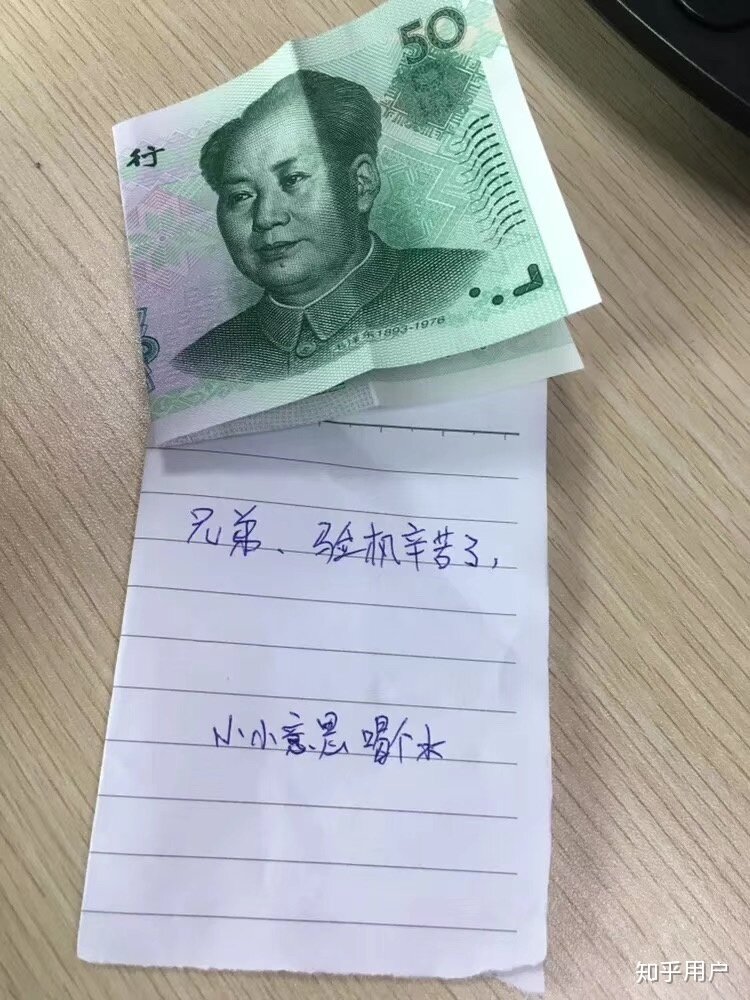 50
行
毛泽东1893-1976
兄弟、验机辛苦了,
小小意思喝个水
知乎用户